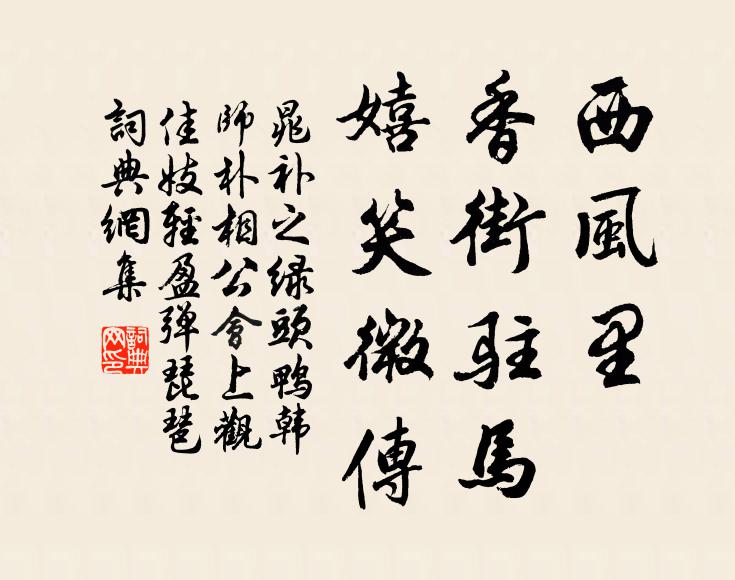 西風里
香街駐馬
嬉笑微傳
晁补之绿頭鴨韩
師朴相公會上觀
佳妓輕盈弹琵琶
詞典網集
詞典网印